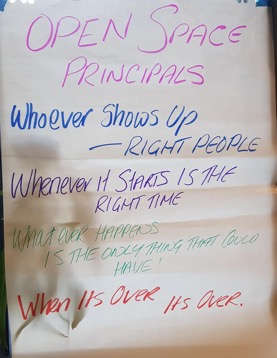 OPEN SPACE
PRINCIPALS
Whoever Shows Up
— RIGHT PEOPLE
Whenever It Starts Is The
RIGHT TIME
Whatever Happens
Is The Only Thing That Could
Have!
When Its Over Its Over.